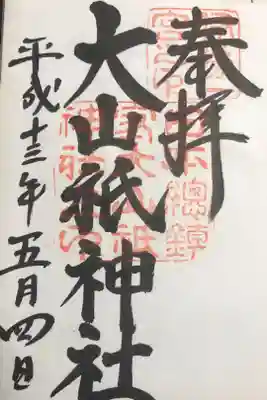 奉拝
日本總鎮
大山祇神社
平成十三年五月四日